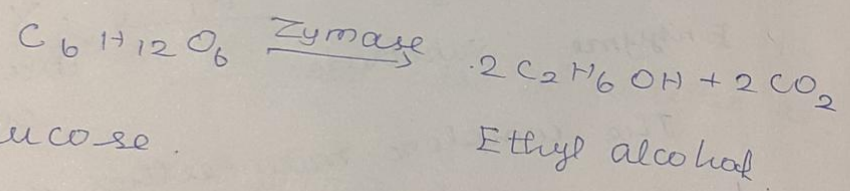 C6H12O6 Zymase → 2C2H6OH + 2CO2
ucose. Ethyl alcohol